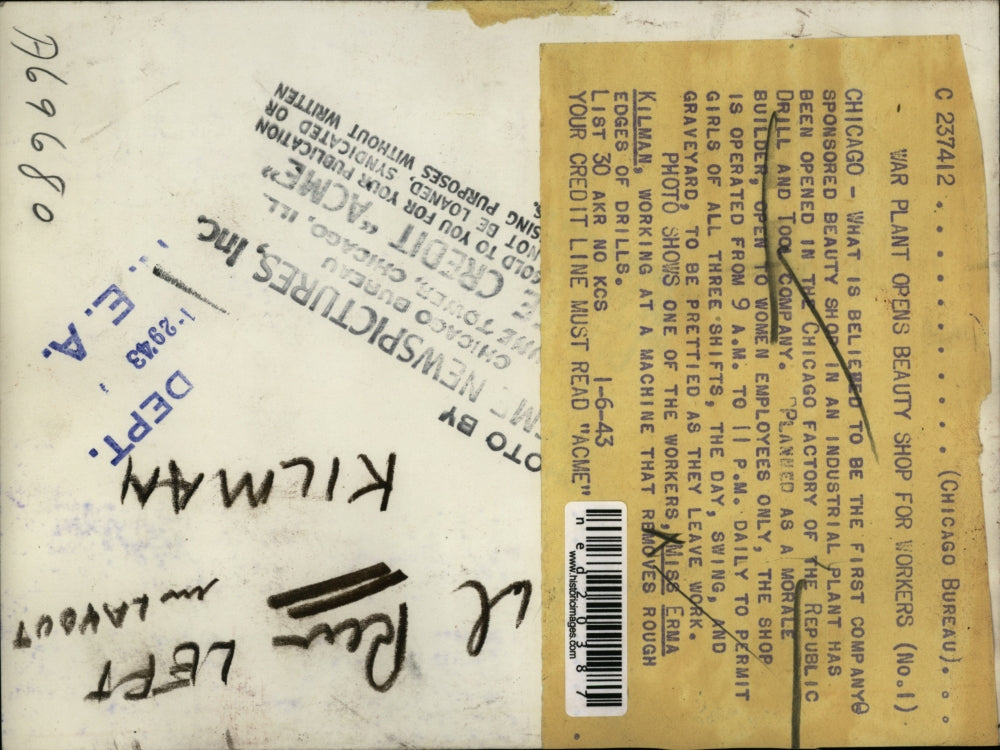 C 237412 . . . . . . . . . . . . (CHICAGO BUREAU). . .
WAR PLANT OPENS BEAUTY SHOP FOR WORKERS (No.1)
CHICAGO - WHAT IS BELIEVED TO BE THE FIRST COMPANY
SPONSORED BEAUTY SHOP IN AN INDUSTRIAL PLANT HAS
BEEN OPENED IN THE CHICAGO FACTORY OF THE REPUBLIC
DRILL AND TOOL COMPANY. PLANNED AS A MORALE
BUILDER, OPEN TO WOMEN EMPLOYEES ONLY, THE SHOP
IS OPERATED FROM 9 A.M. TO 11 P.M. DAILY TO PERMIT
GIRLS OF ALL THREE SHIFTS, THE DAY, SWING, AND
GRAVEYARD, TO BE PRETTIED AS THEY LEAVE WORK.
PHOTO SHOWS ONE OF THE WORKERS, MISS ERMA
KILMAN, WORKING AT A MACHINE THAT REMOVES ROUGH
EDGES OF DRILLS.
LIST 30 AKR NO KCS 1-6-43
YOUR CREDIT LINE MUST READ "ACME"
ned20387
www.historicimages.com
OTO BY
NEWSPICTURES, Inc.
CHICAGO BUREAU
TOWER, CHICAGO, ILL
CREDIT "ACME"
SOLD TO YOU FOR YOUR PUBLICATION
NOT BE LOANED, SYNDICATED OR
SING PURPOSES, WITHOUT WRITTEN
DEPT.
1-29 43
E. A.
A69680
KILMAN
LEFT
in LAYOUT